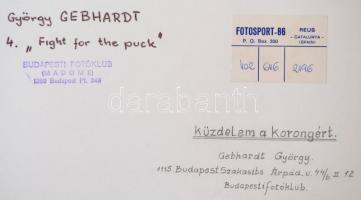 György GEBHARDT
4. „Fight for the puck"
BUDAPESTI FOTÓKLUB
(MADOME)
1359 Budapest Pf. 349
FOTOSPORT-86
P. O. Box, 200
REUS
- CATALUNYA -
(SPAIN)
402 646 2196
darabanth
Küzdelem a korongért.
Gebhardt György.
1115. Budapest Szakasits Árpád. u. 44/b II 12
Budapesti fotóklub.